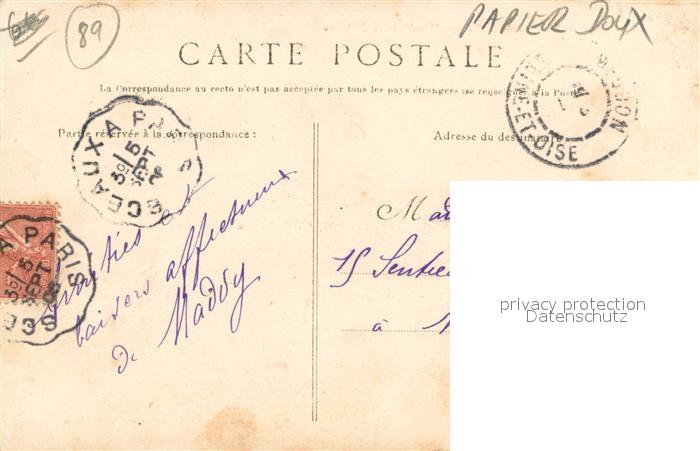 89
PAPIER DOUX
CARTE POSTALE
La Correspondance au recto n'est pas acceptée par tous les pays étrangers (se renseigner à la Poste)
Partie réservée à la correspondance :
Adresse du destinataire
SCEAUX A PARIS
3E / 5
SEPT
ET-OISE
Amitiés et
baisers affectueux
de Maddy
A PARIS
3E / 5
SEPT
SCE
Mad
15 Sentie
à
privacy protection
Datenschutz